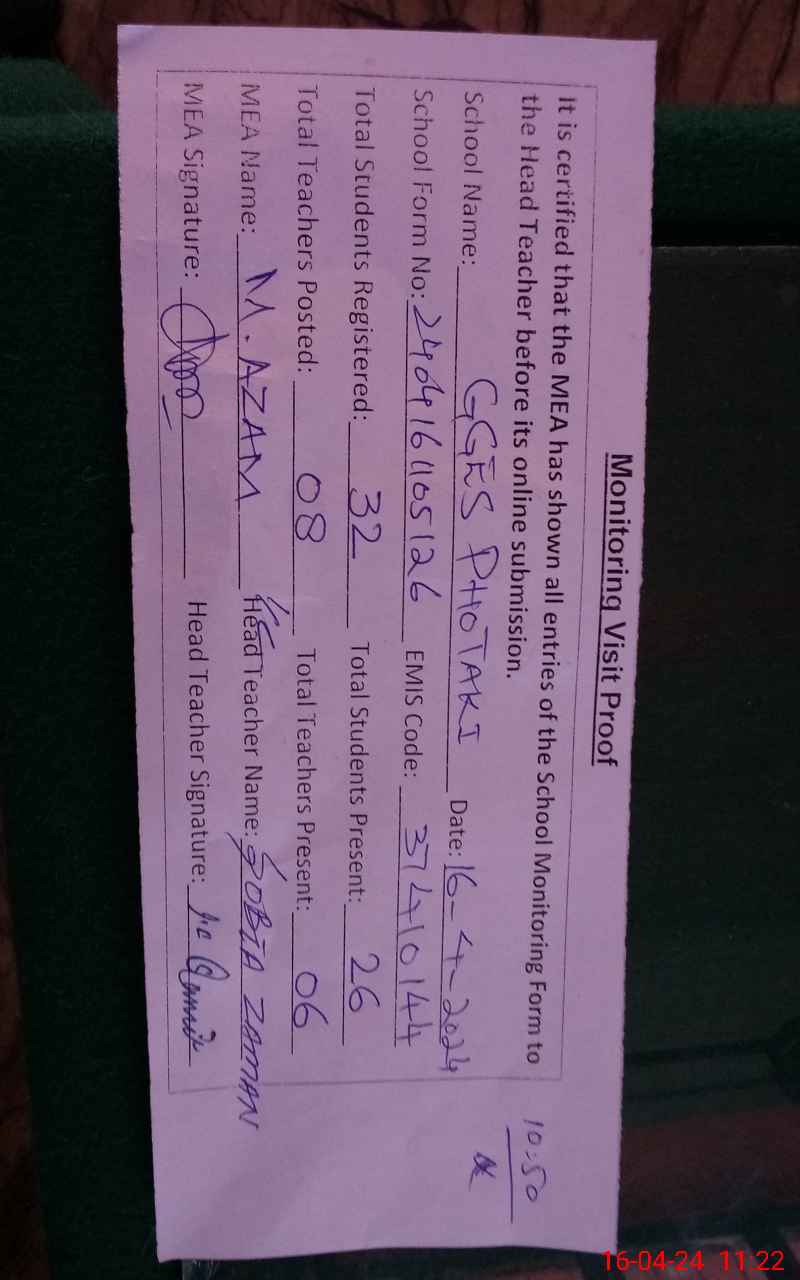 Monitoring Visit Proof
It is certified that the MEA has shown all entries of the School Monitoring Form to
the Head Teacher before its online submission.
10:50
School Name: GGES PHOTAKI Date: 16-4-2024
School Form No: 2404161105126 EMIS Code: 37410144
Total Students Registered: 32 Total Students Present: 26
Total Teachers Posted: 08 Total Teachers Present: 06
MEA Name: M. AZAM I/C Head Teacher Name: SOBIA ZAMAN
MEA Signature: Head Teacher Signature:
16-04-24 11:22